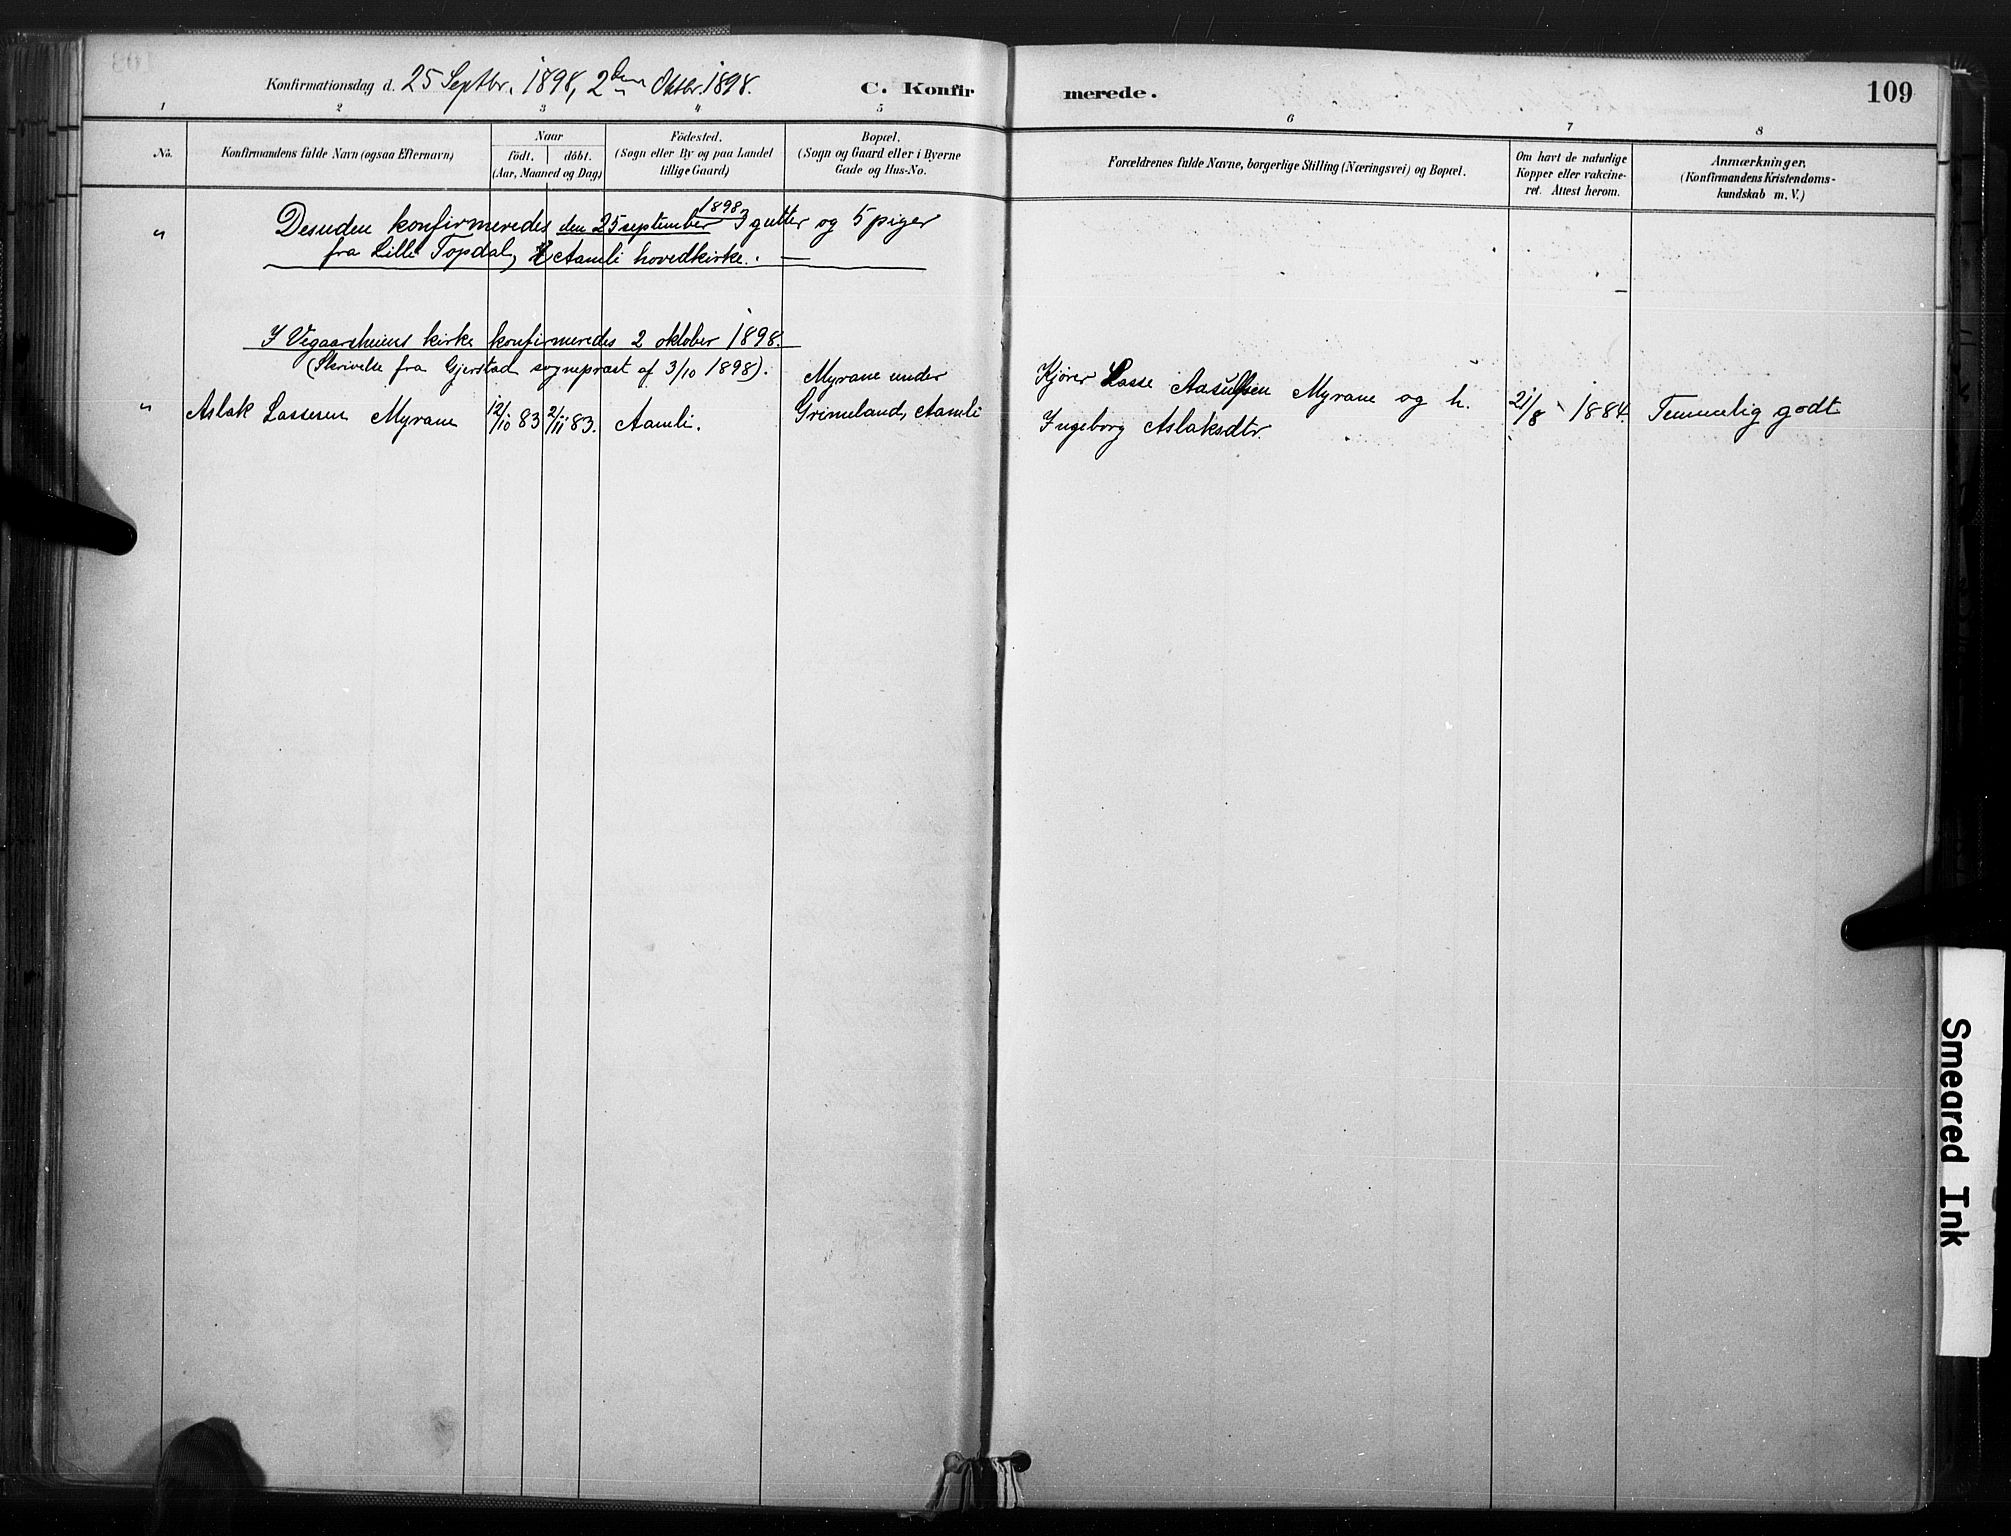 Konfirmationsdag d. 25 Septbr. 1898, 2den Oktbr. 1898.
C. Konfir
merede.
109
1
2
3
4
5
6
7
8
No.
Konfirmandens fulde Navn (ogsaa Efternavn)
Naar
födt. döbt.
(Aar, Maaned og Dag)
Födested.
(Sogn eller By og paa Landet
tillige Gaard)
Bopæl.
(Sogn og Gaard eller i Byerne
Gade og Hus-No.
Forældrenes fulde Navne, borgerlige Stilling (Næringsvei) og Bopæl.
Om havt de naturlige
Kopper eller vakcine-
ret. Attest herom.
Anmærkninger.
(Konfirmandens Kristendoms-
kundskab m. V.)
1898
" Desuden konfirmeredes den 25 september 3 gutter og 5 piger
fra Lille Topdal, i Aamli hovedkirke. —
I Vegaarsheiens kirke konfirmeredes 2 oktober 1898.
(Skrivelse fra Gjerstad sogneprest af 3/10 1898).
Myrane under
Kjører Lasse Aasulfsen Myrane og h.
" Aslak Lassesen Myrane 12/10 83 2/11 83. Aamli. Grimeland, Aamli
Ingeborg Aslaksdtr.
21/8 1884. Temmelig godt
Smeared Ink